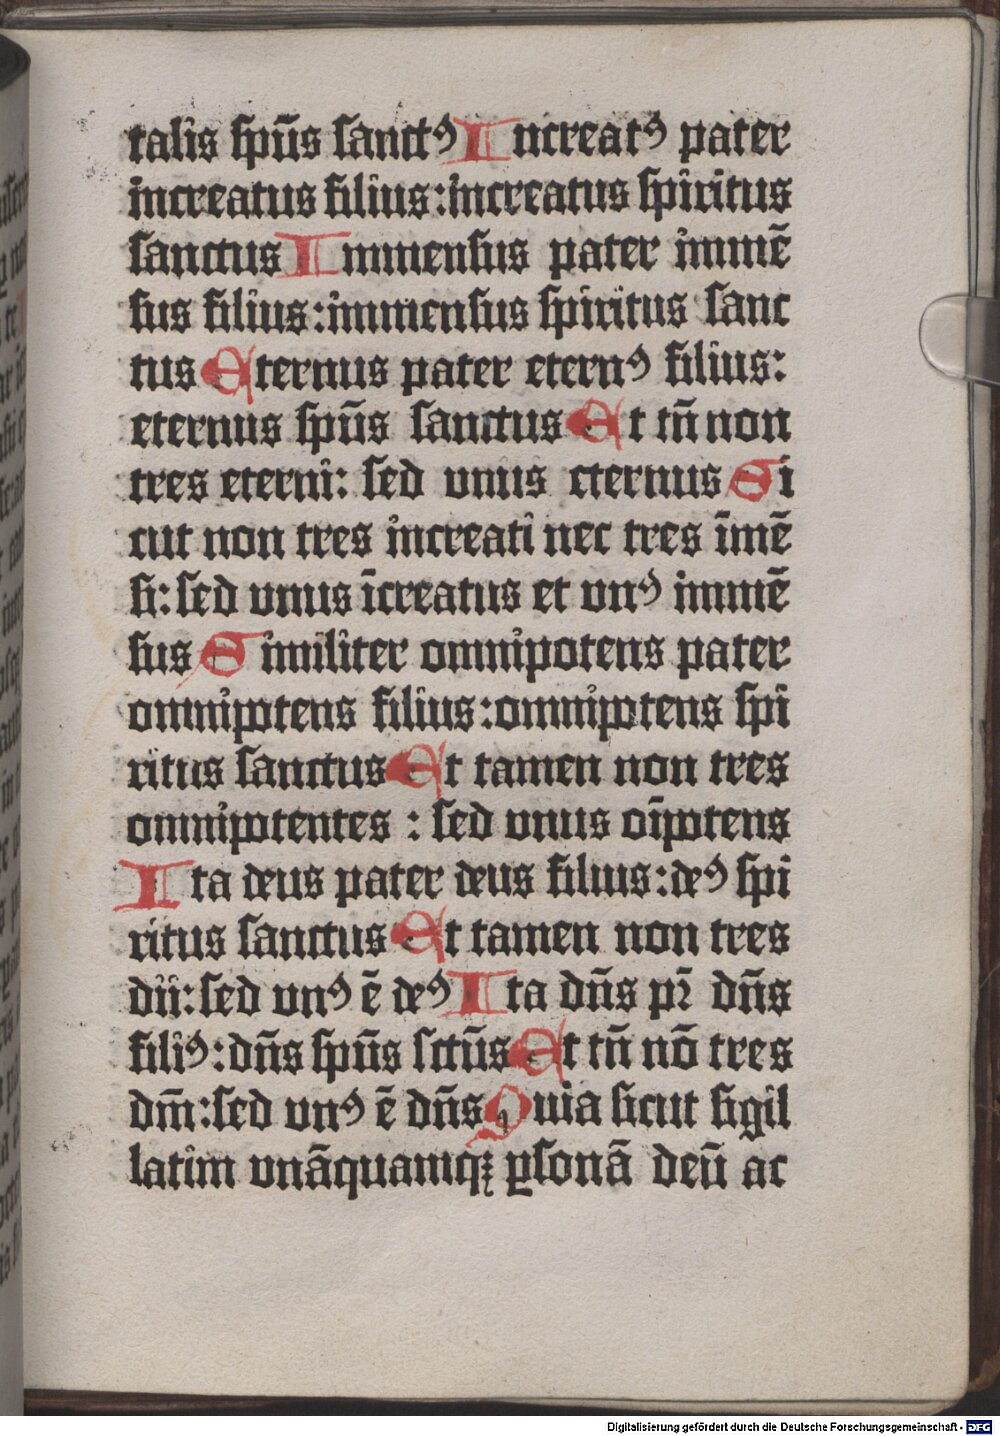 talis spūs sanctꝰ Increatꝰ pater
increatus filius: increatus spiritus
sanctus Immensus pater immē
sus filius: immensus spiritus sanc
tus Eternus pater eternꝰ filius:
eternus spūs sanctus Et tn̄ non
tres eterni: sed vnus eternus Si
cut non tres increati nec tres īmē
si: sed vnus īcreatus et vnꝰ immē
sus Similiter omnipotens pater
omnipotens filius: omnipotens spi
ritus sanctus Et tamen non tres
omnipotentes : sed vnus oīpotens
Ita deus pater deus filius: deꝰ spi
ritus sanctus Et tamen non tres
dii: sed vnꝰ ē deꝰ Ita dn̄s pr̄ dn̄s
filiꝰ: dn̄s spūs sctūs Et tn̄ nō tres
dn̄i: sed vnꝰ ē dn̄s Quia sicut sigil
latim vnāquamqꝫ ꝑsonā deū ac
Digitalisierung gefördert durch die Deutsche Forschungsgemeinschaft - DFG